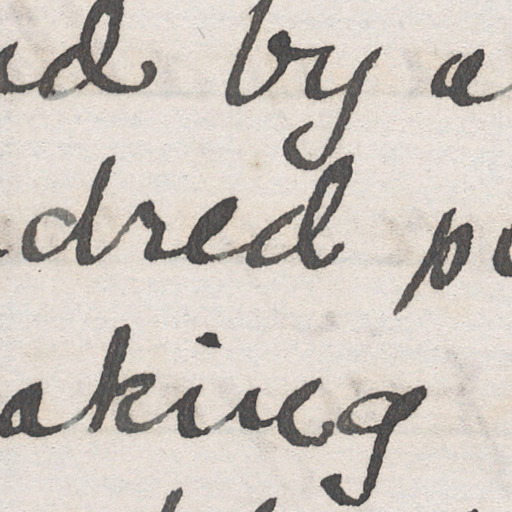 nd by a
dred pe
aking